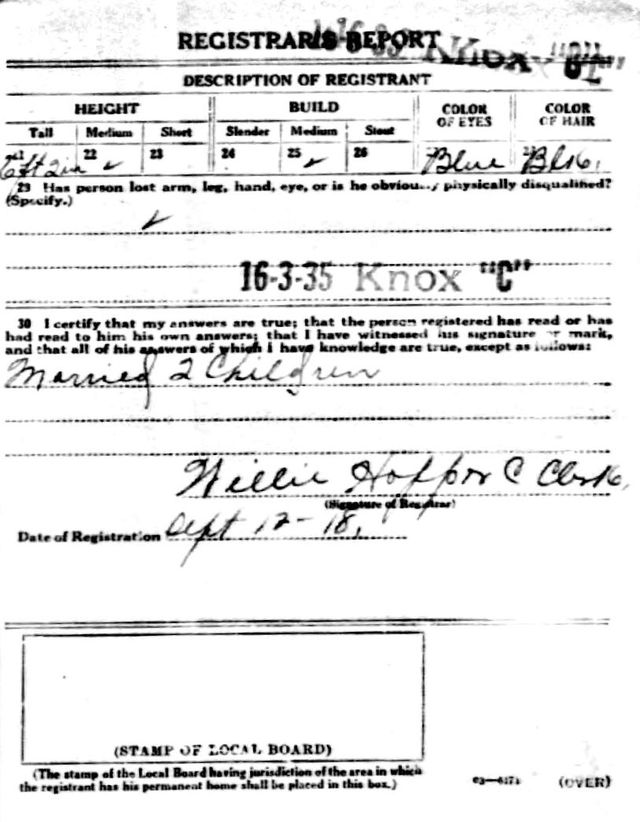 REGISTRAR'S REPORT
Knox "C"
DESCRIPTION OF REGISTRANT
HEIGHT BUILD COLOR OF EYES COLOR OF HAIR
Tall Medium Short Slender Medium Stout
21 22 ✓ 23 24 25 ✓ 26
6 ft 2 in Blue Blk
29 Has person lost arm, leg, hand, eye, or is he obviously physically disqualified?
(Specify.)
✓
16-3-35 Knox "C"
30 I certify that my answers are true; that the person registered has read or has
had read to him his own answers; that I have witnessed his signature or mark,
and that all of his answers of which I have knowledge are true, except as follows:
Married 2 Children
Willie C Clerk
(Signature of Registrar)
Date of Registration Sept 12-18,
(STAMP OF LOCAL BOARD)
(The stamp of the Local Board having jurisdiction of the area in which
the registrant has his permanent home shall be placed in this box.)
03—6171 (OVER)